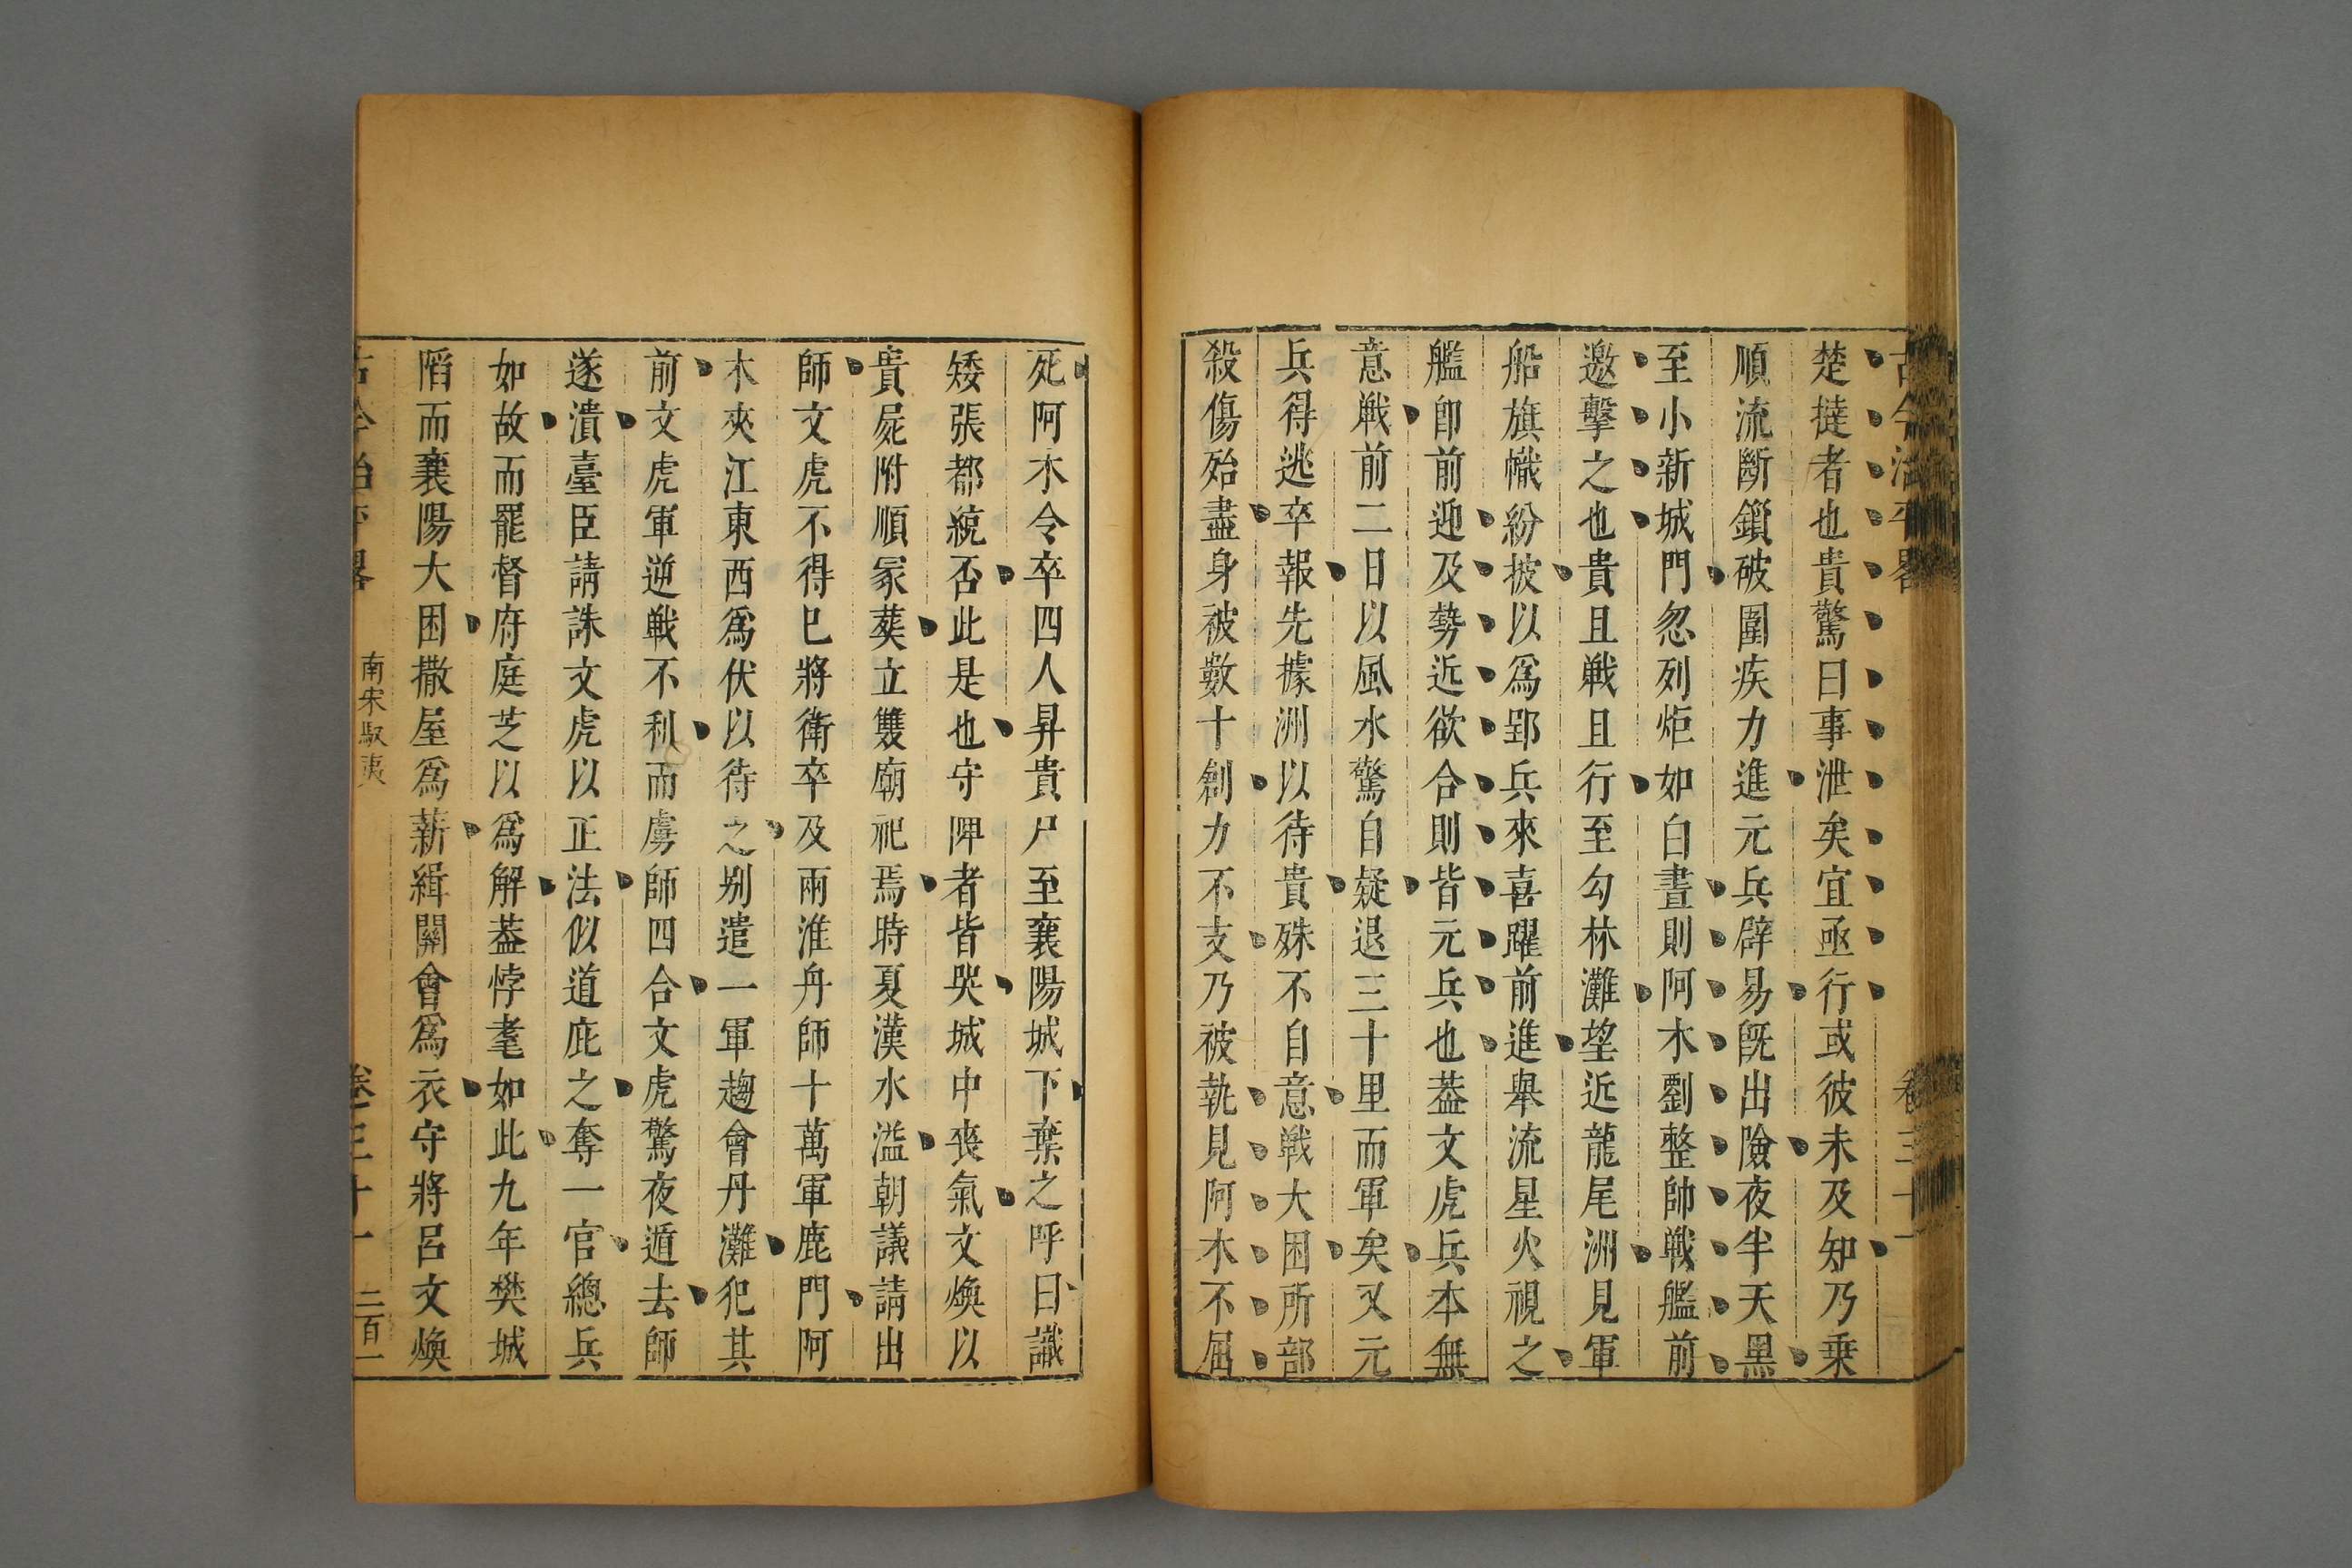 古今治平畧
卷三十一
楚撻者也貴驚曰事泄矣宜亟行或彼未及知乃乗
順流斷鎖破圍疾力進元兵辟易旣出險夜半天黑
至小新城門忽列炬如白晝則阿术劉整帥戦艦前
邀擊之也貴且戦且行至勾林灘望近龍尾洲見軍
船旗幟紛披以爲郢兵來喜躍前進舉流星火視之
艦卽前迎及勢近欲合則皆元兵也葢文虎兵本無
意戦前二日以風水驚自疑退三十里而軍矣又元
兵得逃卒報先據洲以待貴殊不自意戦大困所部
殺傷殆盡身被數十創力不支乃被執見阿术不屈
死阿术令卒四人舁貴尸至襄陽城下棄之呼曰識
矮張都統否此是也守陴者皆哭城中喪氣文煥以
貴屍附順冢葬立雙廟祀焉時夏漢水溢朝議請出
師文虎不得已將衛卒及兩淮舟師十萬軍鹿門阿
术夾江東西爲伏以待之别遣一軍趨會丹灘犯其
前文虎軍逆戦不利而虜師四合文虎驚夜遁去師
遂潰臺臣請誅文虎以正法似道庇之奪一官總兵
如故而罷督府庭芝以爲解葢悖耄如此九年樊城
䧟而襄陽大困撒屋爲薪緝關會爲衣守將呂文煥
古今治平畧
南宋馭夷
卷三十一
二百一